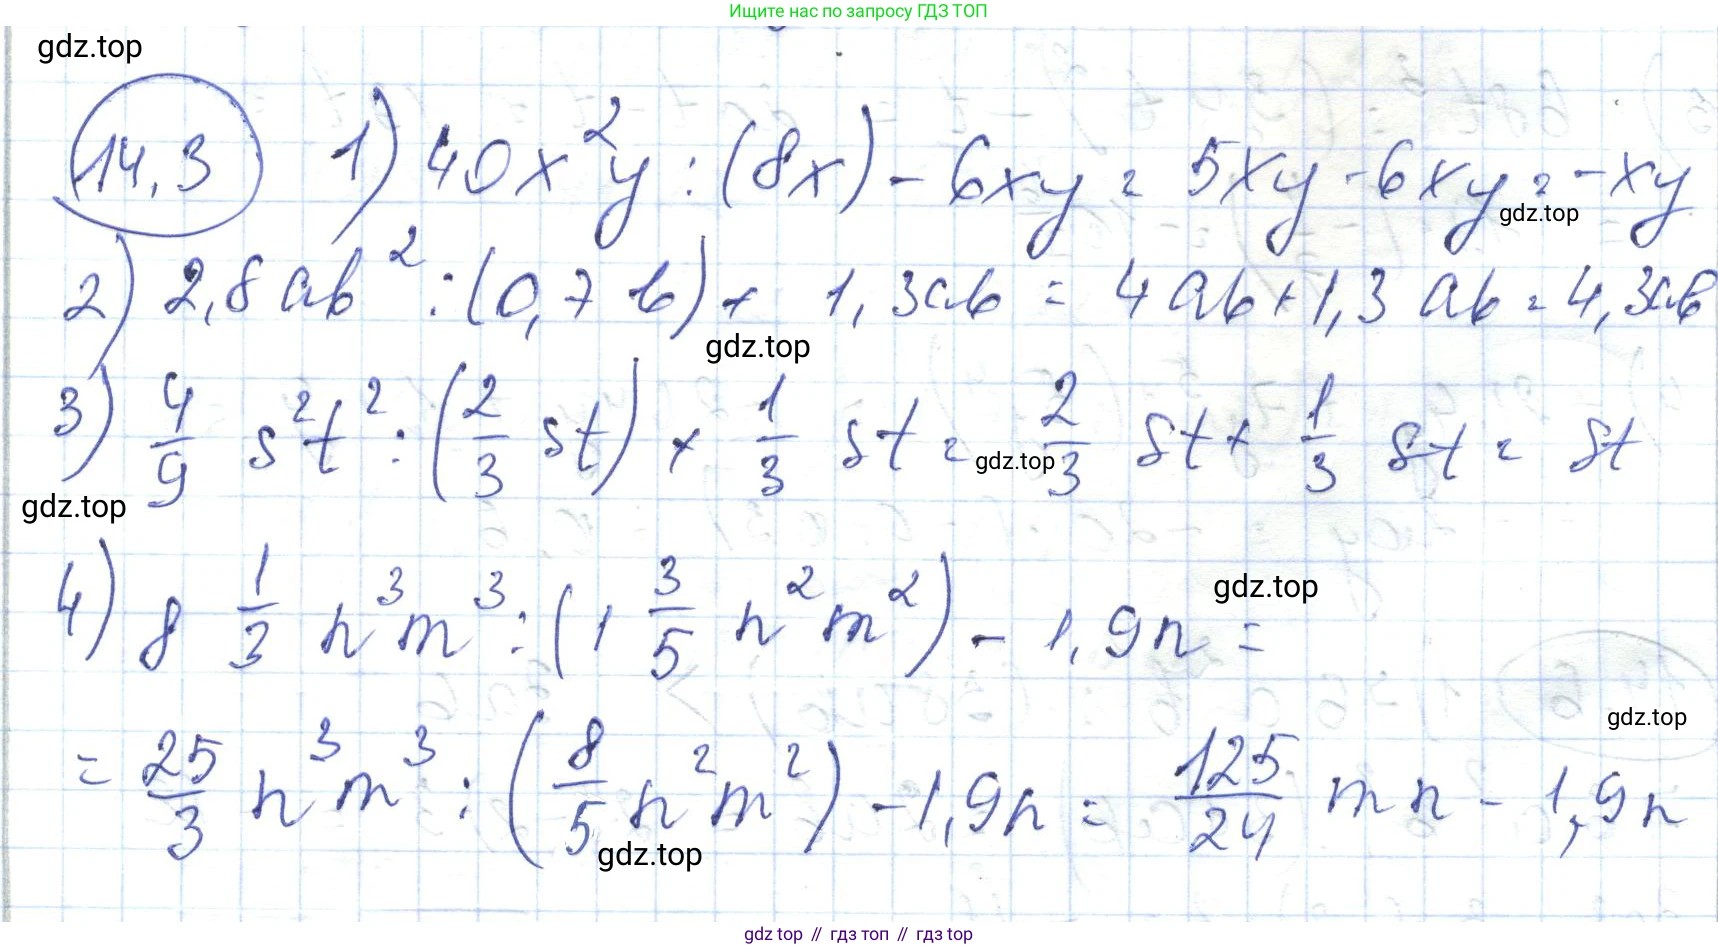 Ищите нас по запросу ГДЗ ТОП
gdz.top
14,3 1) 40x²y : (8x) - 6xy = 5xy - 6xy = -xy
gdz.top
2) 2,8ab² : (0,7b) + 1,3ab = 4ab + 1,3ab = 4,3ab
gdz.top
3) 4/9 s²t² : (2/3 st) + 1/3 st = 2/3 st + 1/3 st = st
gdz.top
gdz.top
4) 8 1/3 n³m³ : (1 3/5 n²m²) - 1,9n =
gdz.top
= 25/3 n³m³ : (8/5 n²m²) - 1,9n = 125/24 mn - 1,9n
gdz.top
gdz.top
gdz top // гдз топ // гдз top